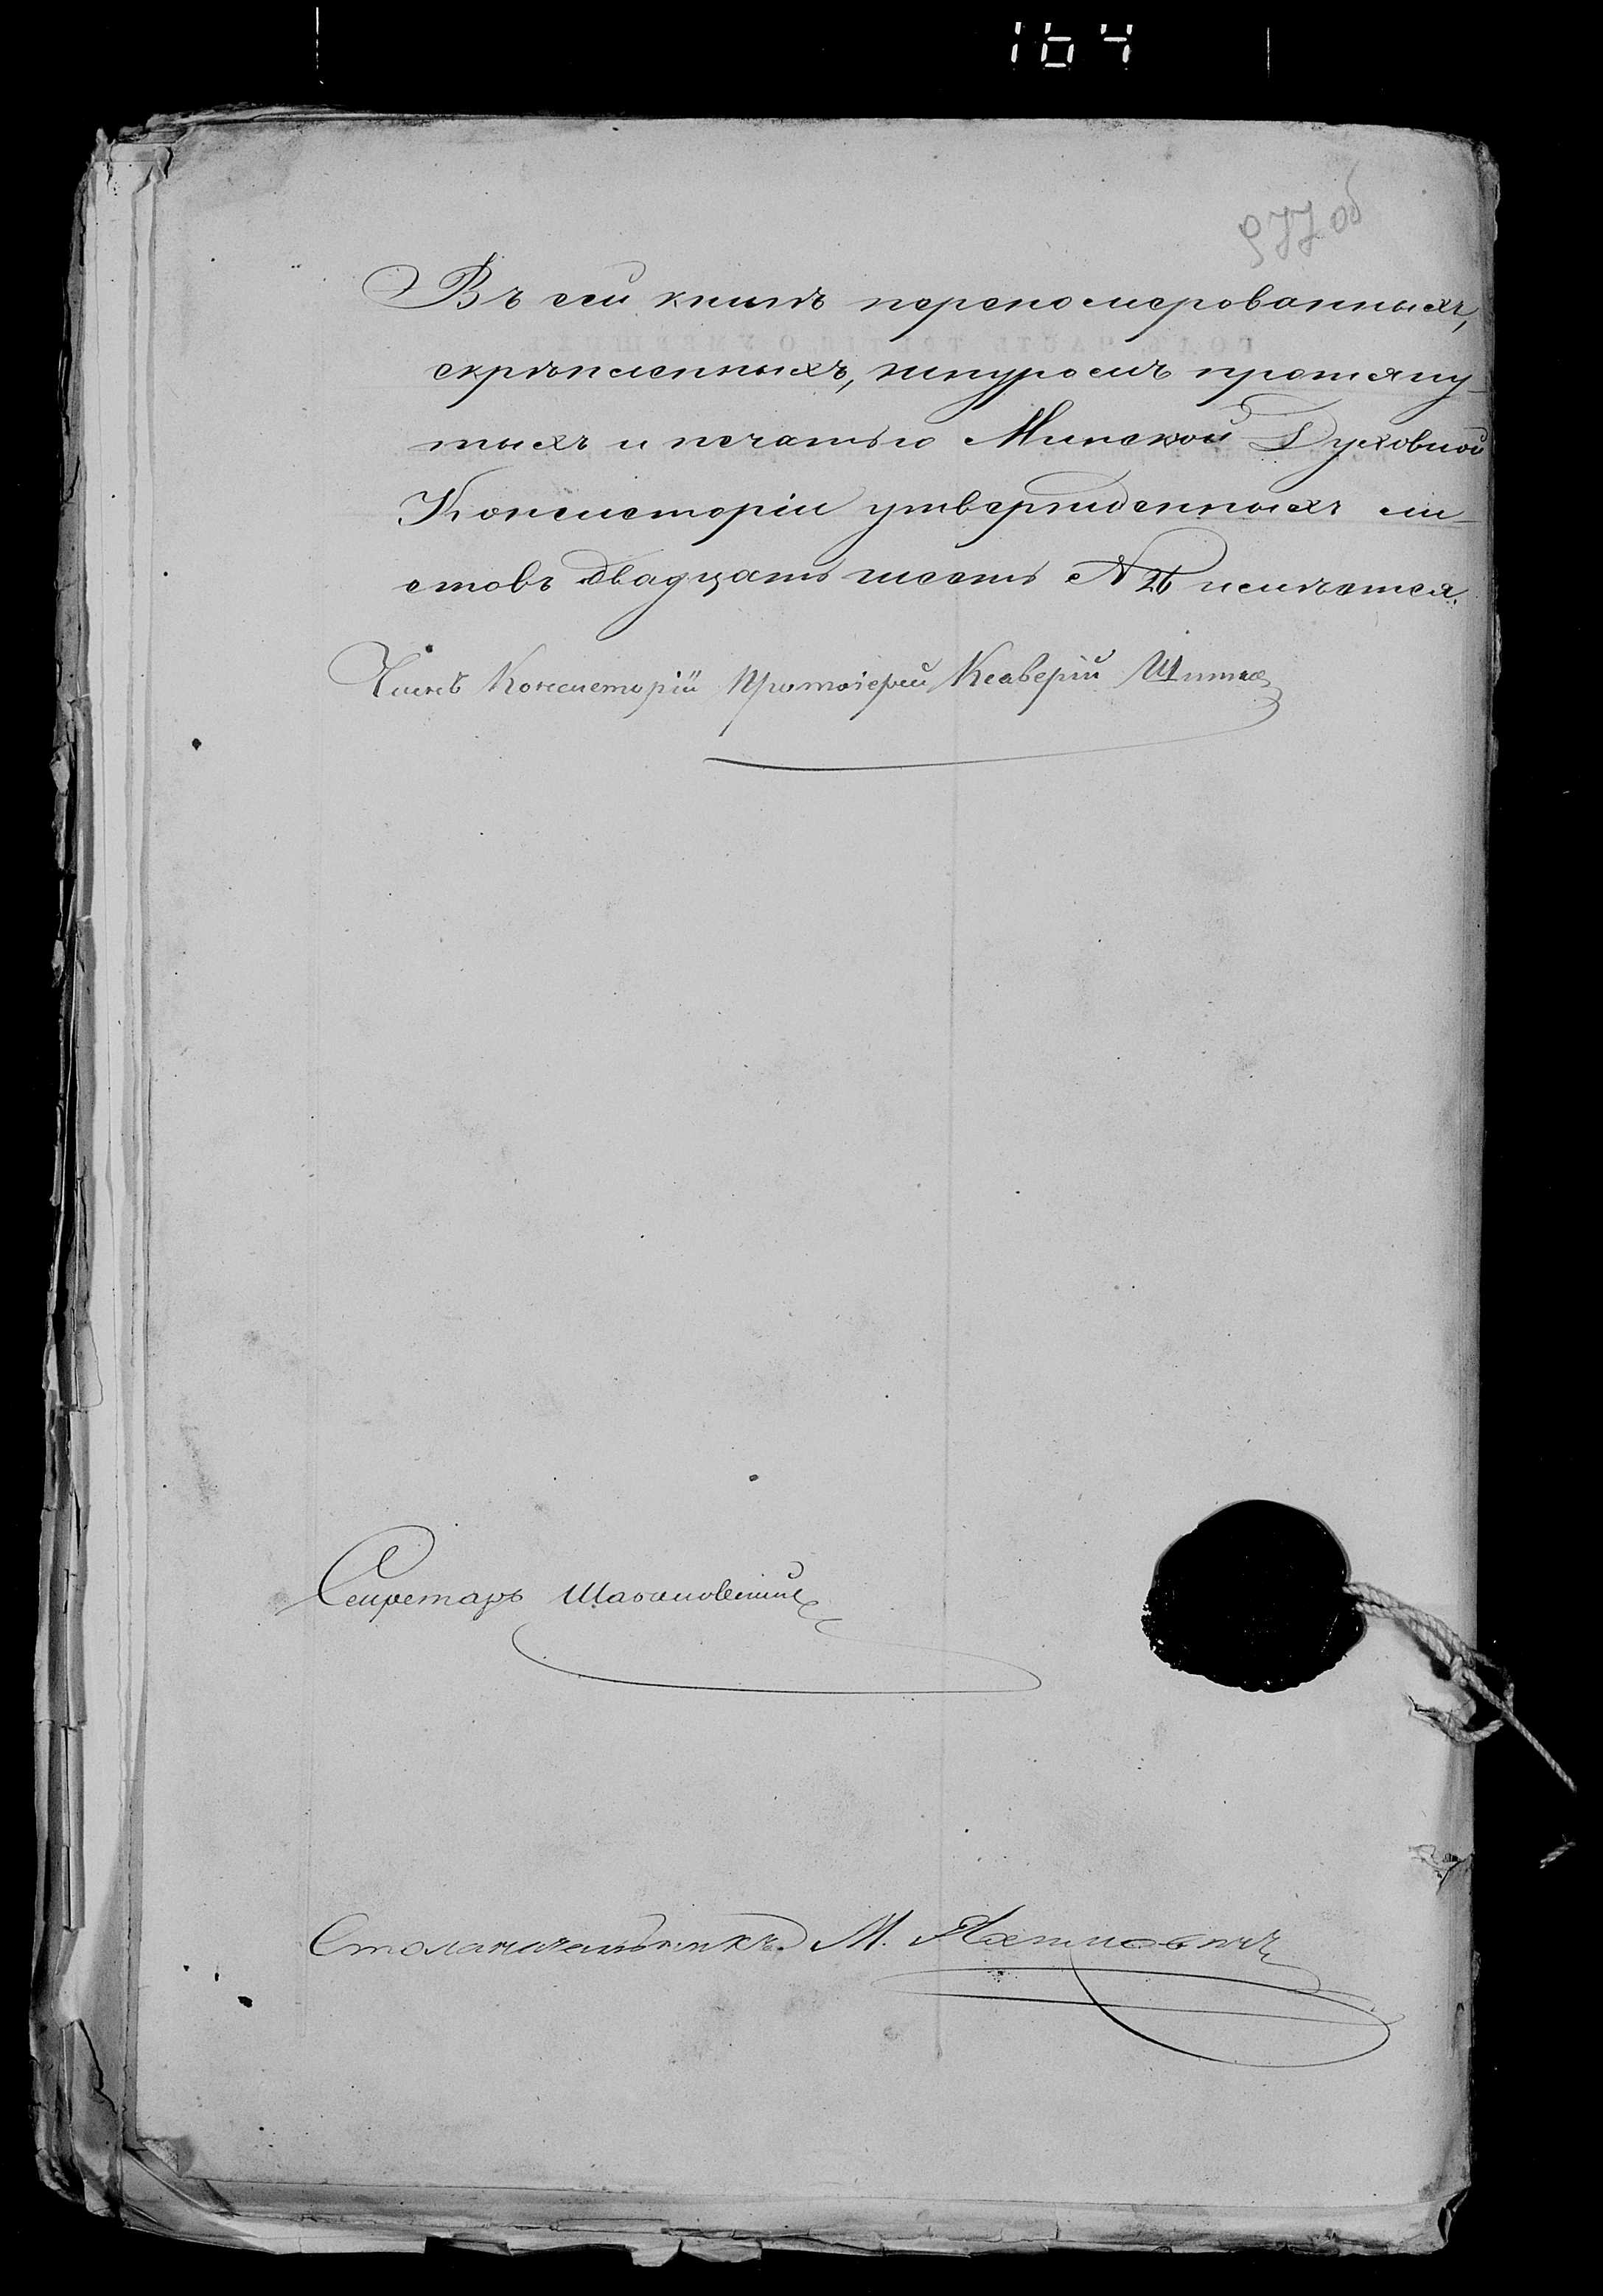 164
977 об
Въ сей книгѣ перепомерованныхъ,
скрѣпленныхъ, шнуромъ протяну-
тыхъ и печатью Минской Духовной
Консисторіи утвержденныхъ ли-
стовъ двадцать шесть № 26 имѣется.
Членъ Консисторіи Протоіерей Ксаверій
Секретарь
Столоначальникъ М.